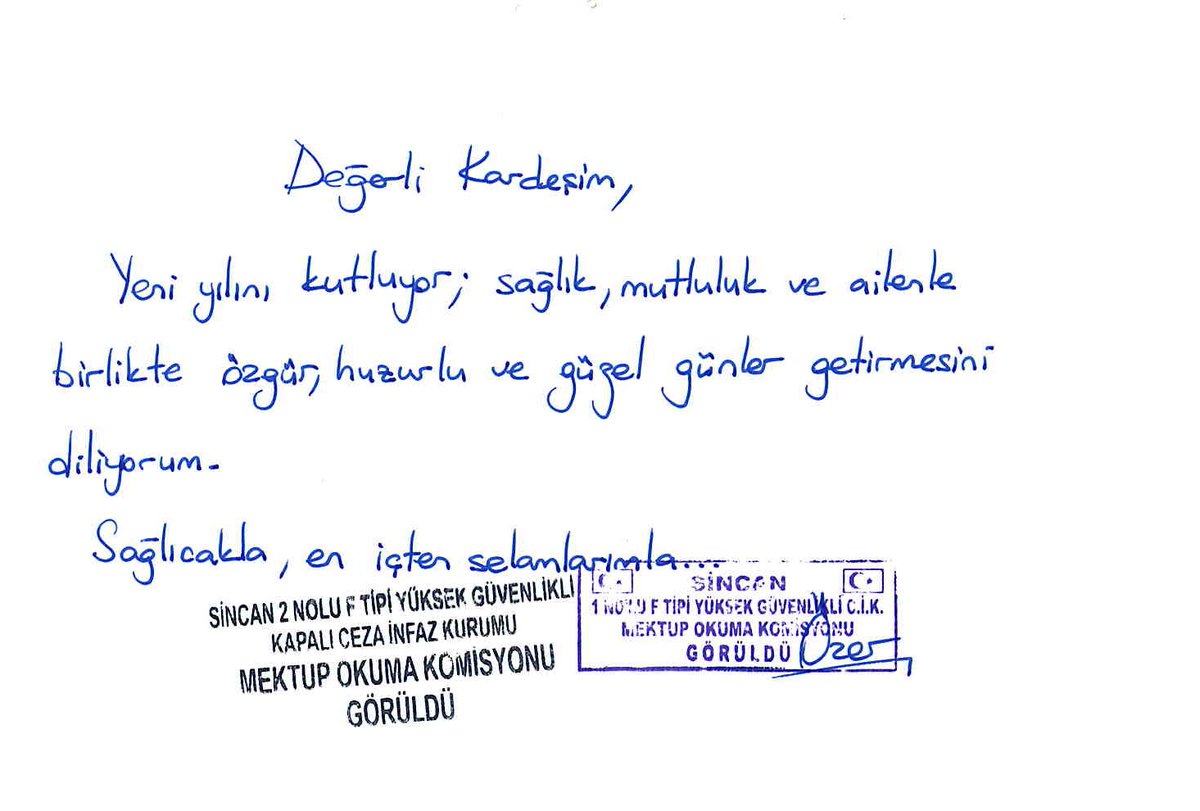 Değerli Kardeşim,
Yeni yılını kutluyor; sağlık, mutluluk ve ailenle
birlikte özgür, huzurlu ve güzel günler getirmesini
diliyorum.
Sağlıcakla, en içten selamlarımla...
SİNCAN 2 NOLU F TİPİ YÜKSEK GÜVENLİKLİ
KAPALI CEZA İNFAZ KURUMU
MEKTUP OKUMA KOMİSYONU
GÖRÜLDÜ
SİNCAN
1 NOLU F TİPİ YÜKSEK GÜVENLİKLİ C.İ.K.
MEKTUP OKUMA KOMİSYONU
GÖRÜLDÜ
Özer